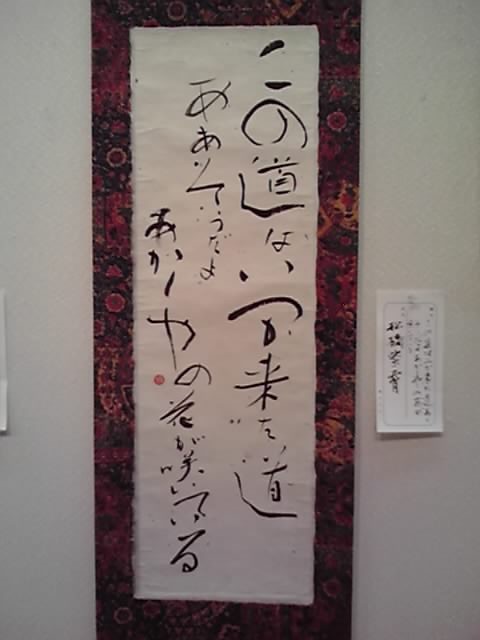 この道はいつか来た道
ああそうだよ
あかしやの花が咲いてる